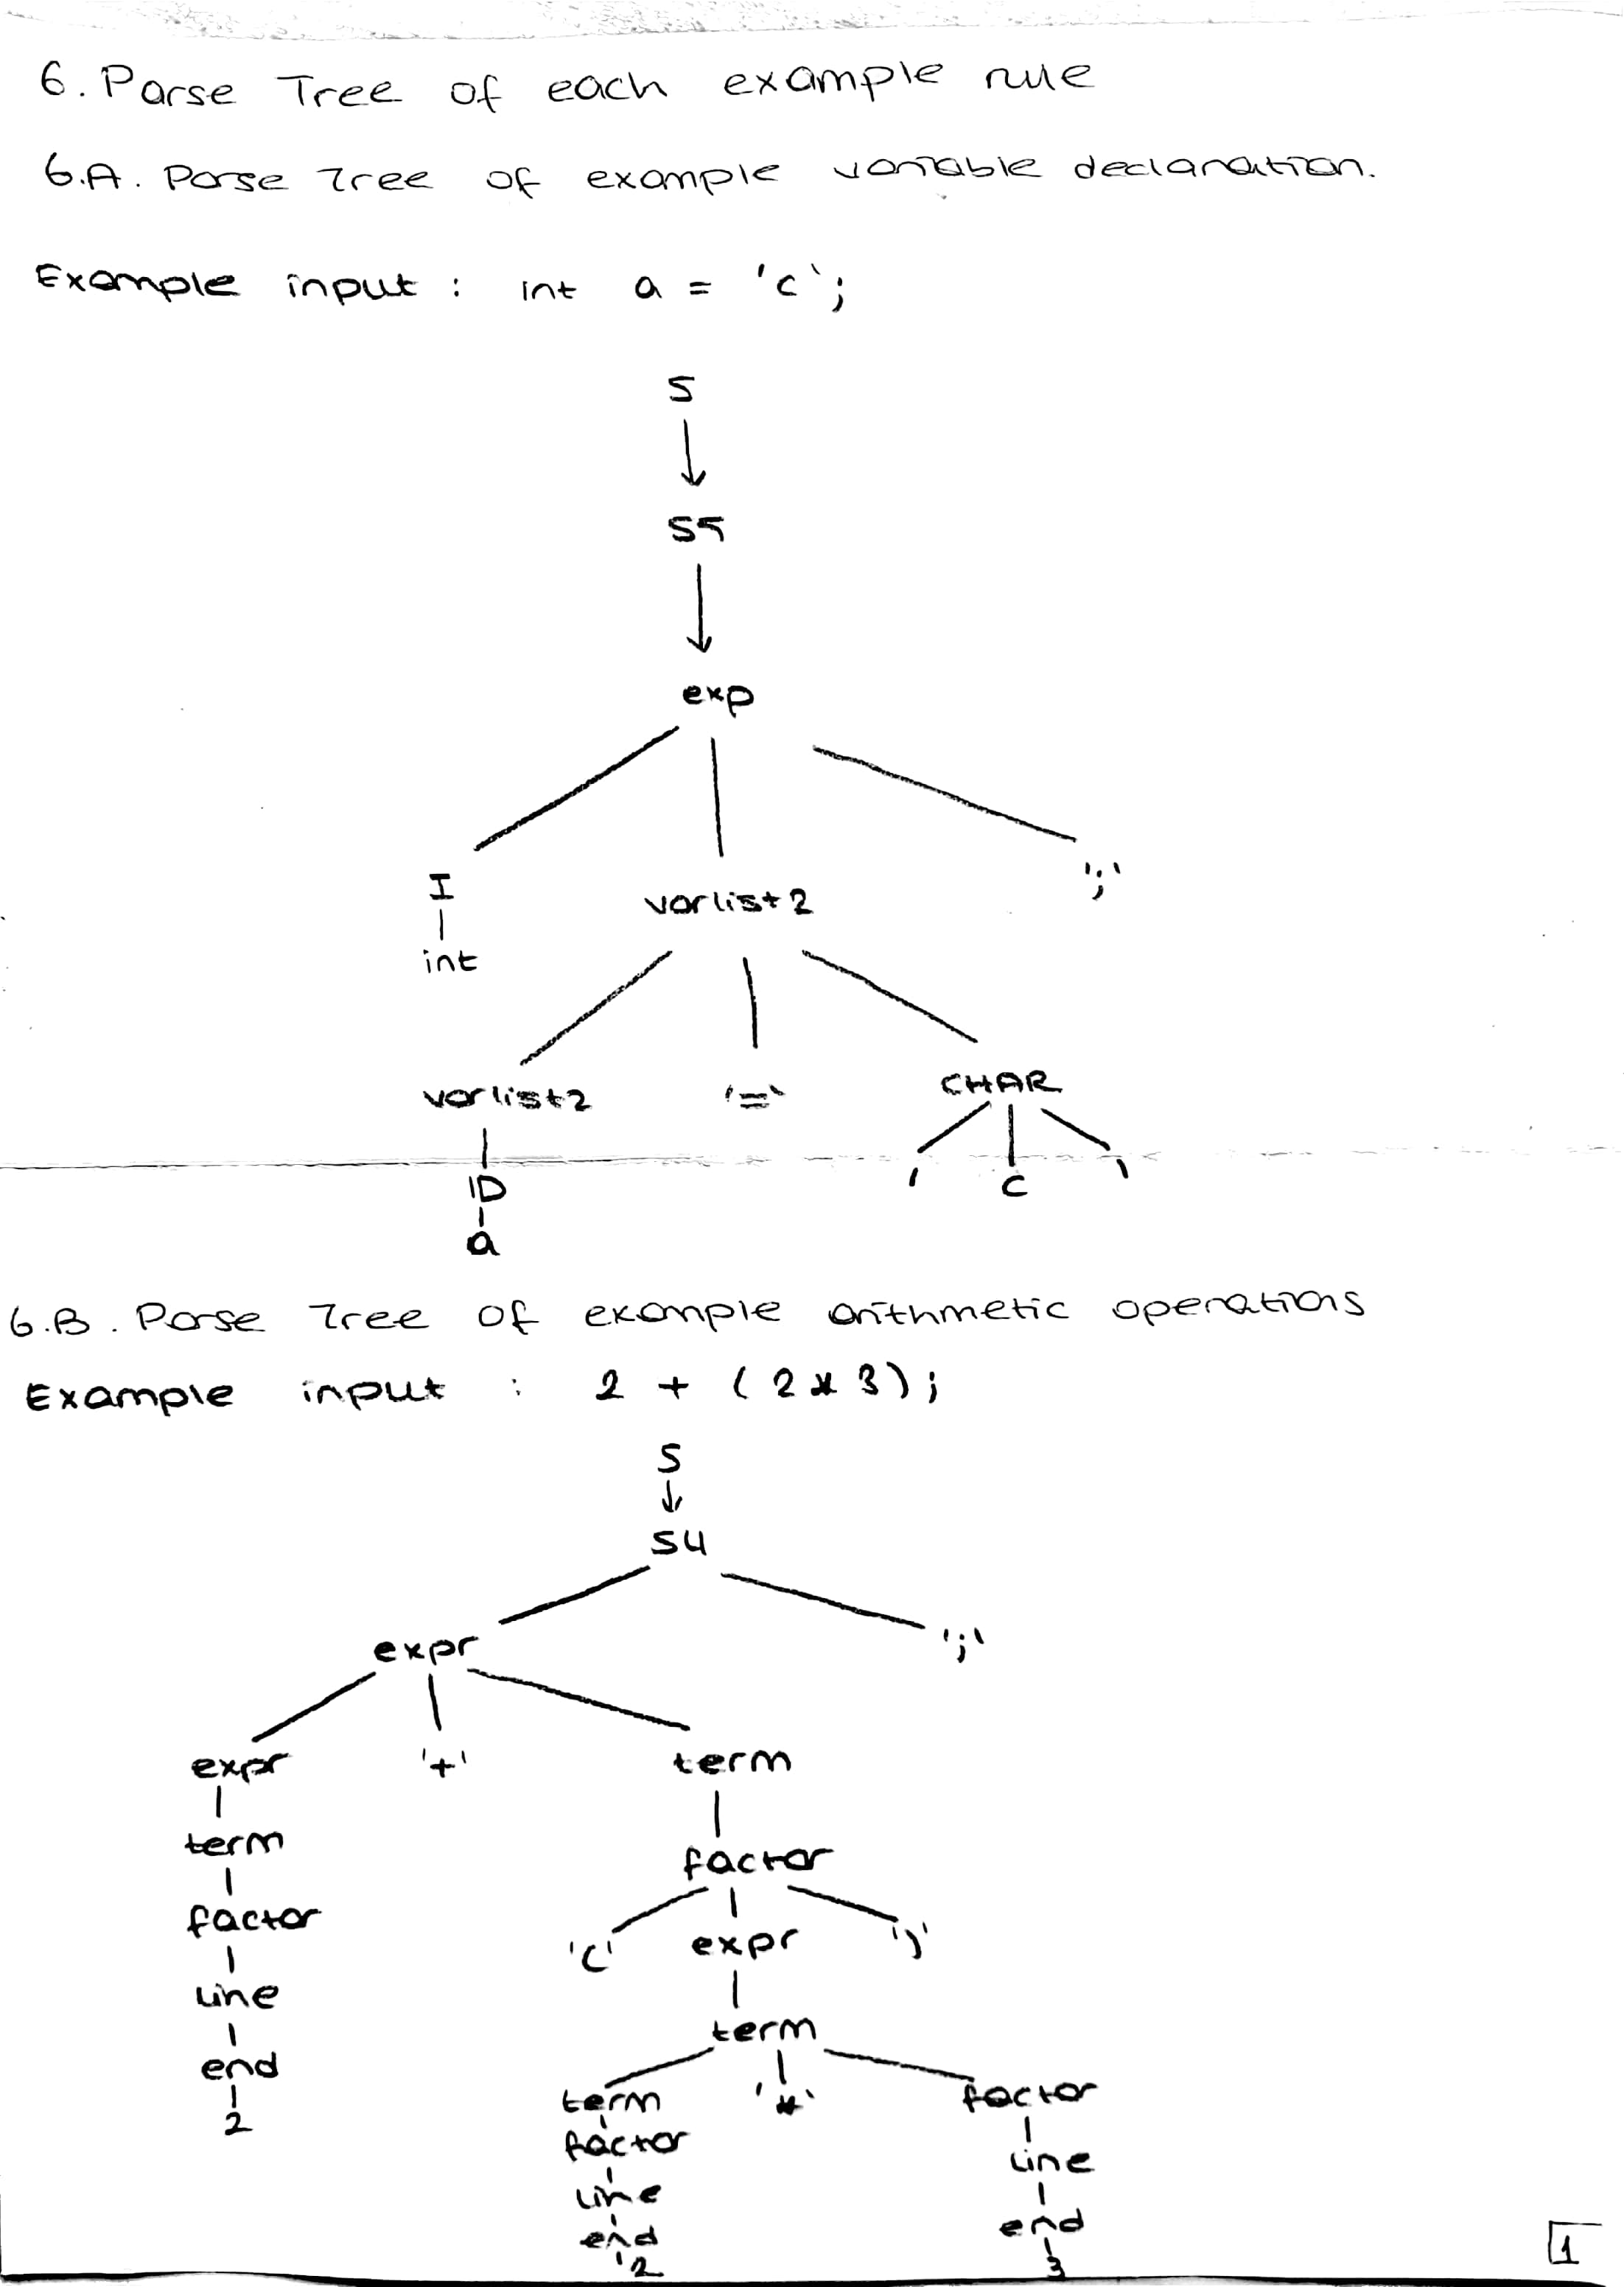 6. Parse Tree of each example rule
6.A. Parse Tree of example variable declaration.
Example input : int a = 'c';
S
S5
exp
I varlist2 ';'
int
varlist2 '=' CHAR
ID ' c '
a
6.B. Parse Tree of example arithmetic operations
Example input : 2 + (2*3);
S
S4
expr ';'
expr '+' term
term factor
factor '(' expr ')'
line term
end term '*' factor
2 factor line
line end
end 3
2
1